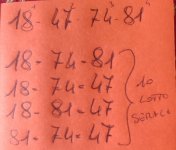 18 - 47 - 74 - 81
18 - 74 - 81
18 - 74 = 47
18 - 81 = 47
81 - 74 = 47
10
LOTTO
SERALE